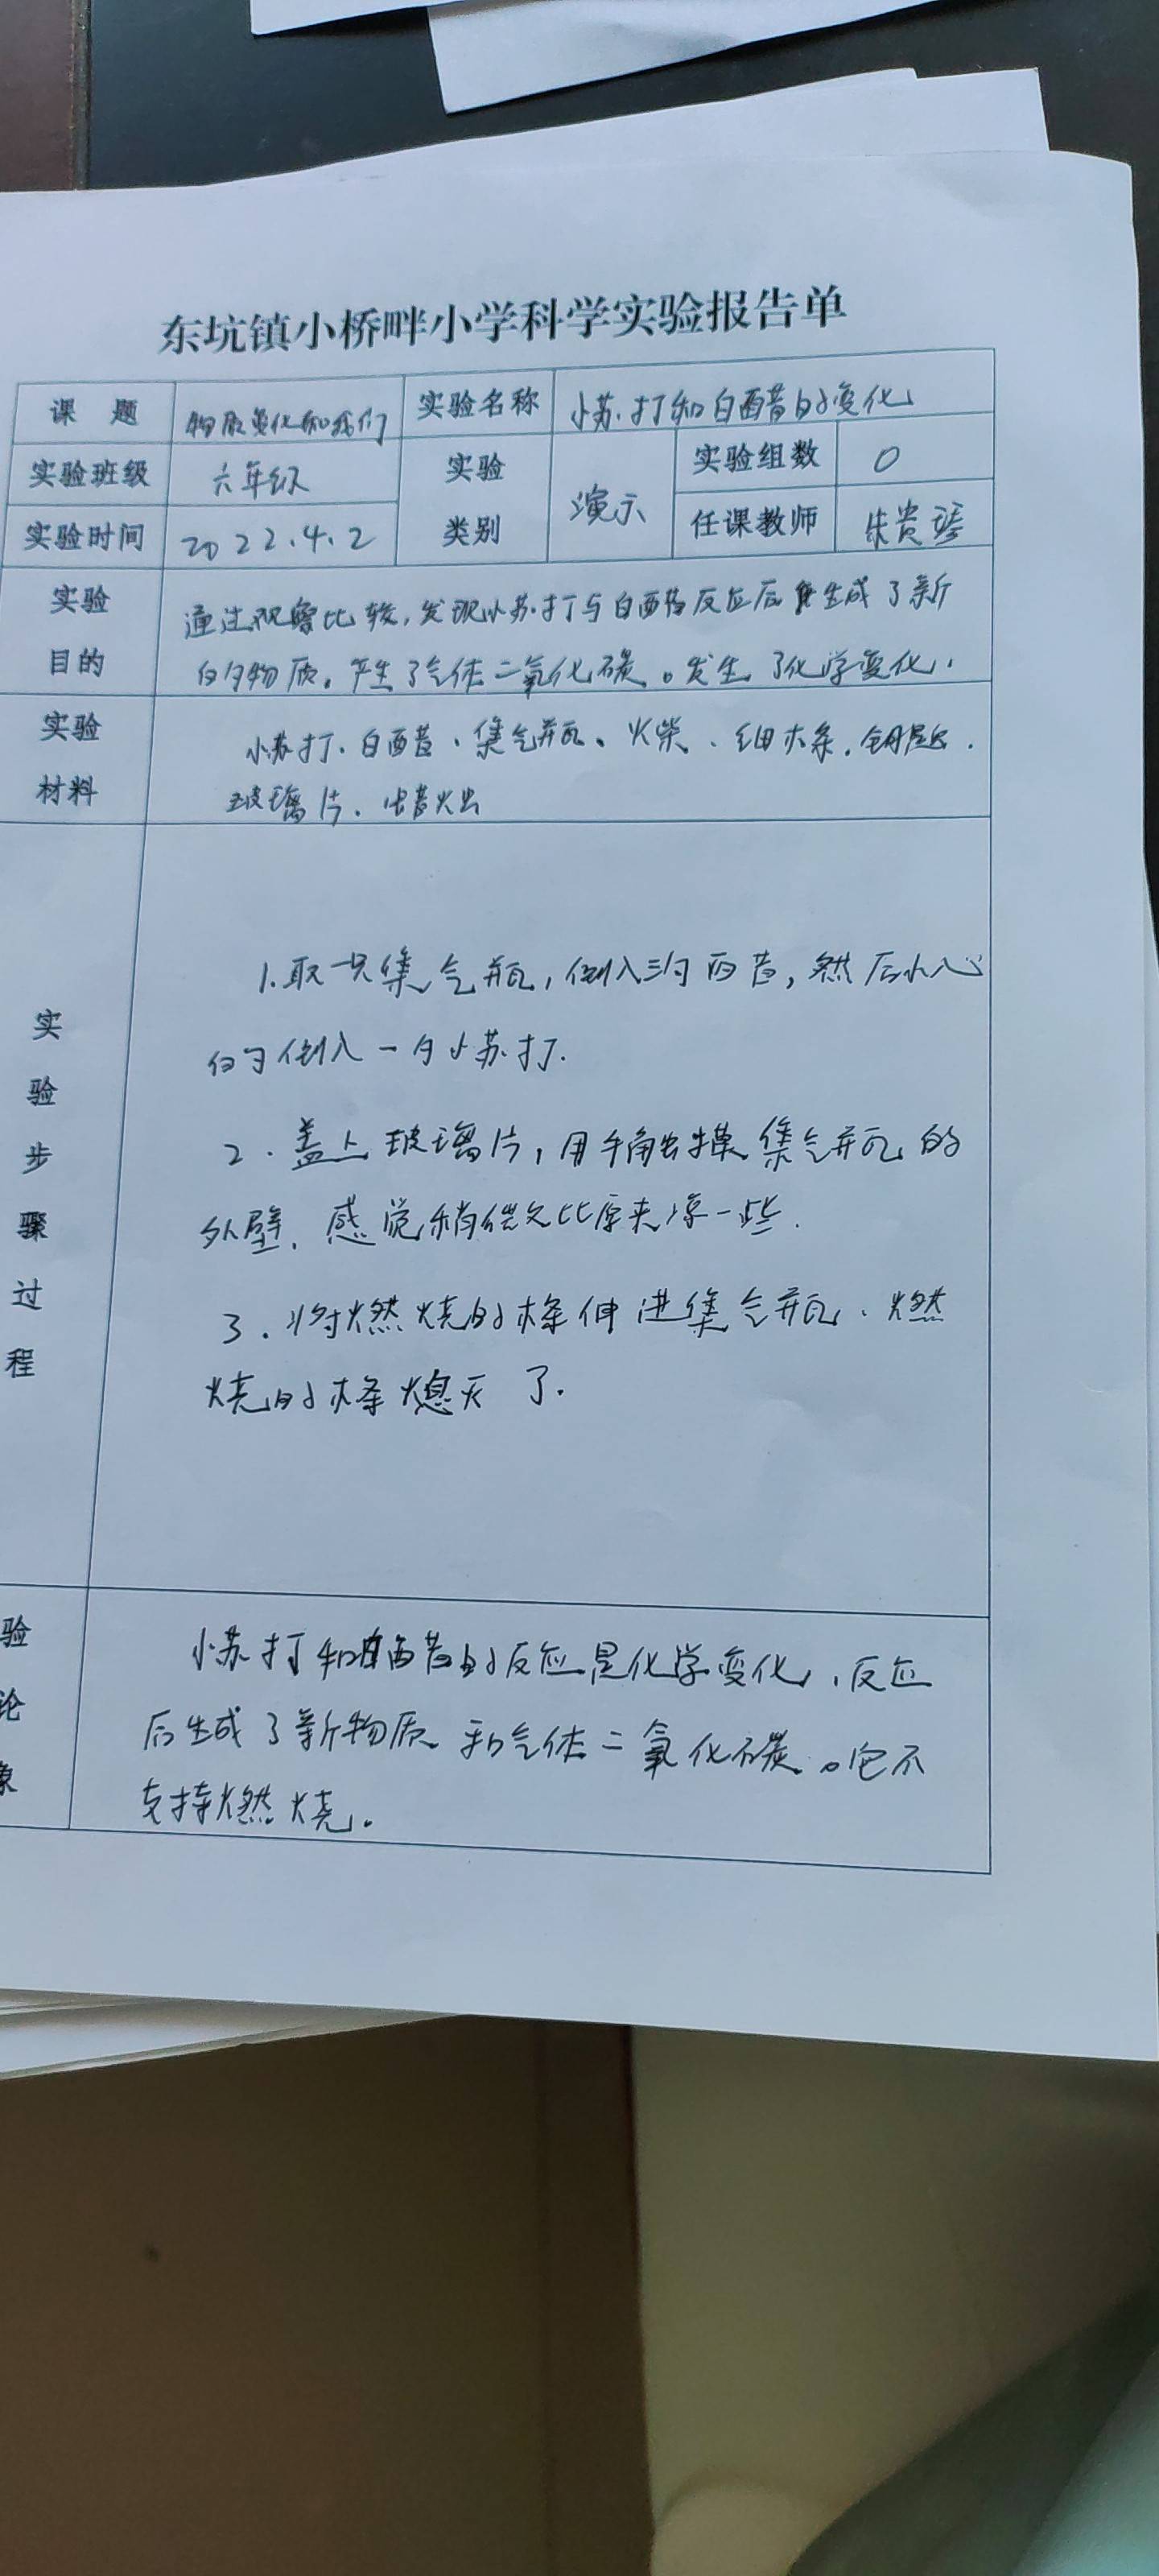 东坑镇小桥畔小学科学实验报告单
课 题 物质变化和我们 实验名称 小苏打和白醋的变化
实验班级 六年级 实验 类别 演示 实验组数 0
实验时间 2022.4.2 任课教师 朱贵
实验 通过观察比较,发现小苏打与白醋反应后生成了新
目的 的物质。产生了气体二氧化碳。发生了化学变化.
实验 小苏打、白醋、集气瓶、火柴、细木条、钥匙.
材料 玻璃片、蜡烛
实验步骤过程
1.取一只集气瓶,倒入三勺白醋,然后小心
的倒入一勺小苏打.
2.盖上玻璃片,用手触摸集气瓶的
外壁,感觉稍微比原来凉一些.
3.将燃烧的木条伸进集气瓶、燃
烧的木条熄灭了.
验 小苏打和白醋的反应是化学变化,反应
论 后生成了新物质和气体二氧化碳。它不
象 支持燃烧。